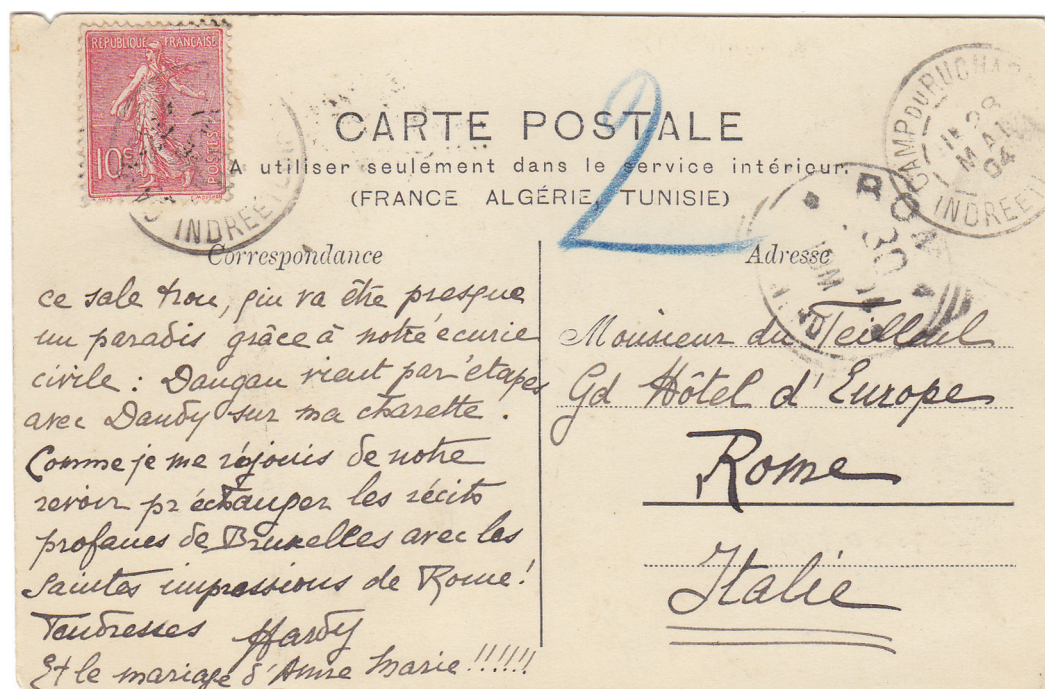 REPUBLIQUE FRANÇAISE
10c
POSTES
CARTE POSTALE
A utiliser seulement dans le service intérieur.
(FRANCE ALGÉRIE, TUNISIE)
2
CAMP DU RUCHARD
28
MAI
04
INDRE ET L
INDRE ET L
ROMA
30
Correspondance
Adresse
ce sale trou, qui va être presque
un paradis grâce à notre écurie
civile : Daugan vient par étapes
avec Dandy sur ma charette.
Comme je me réjouis de notre
revoir pr échanger les récits
profanes de Bruxelles avec les
Saintes impressions de Rome !
Tendresses Hardy
Et le mariage d'Anne Marie !!!!!!
Monsieur du Teilleul
Gd Hôtel d'Europe
Rome
Italie